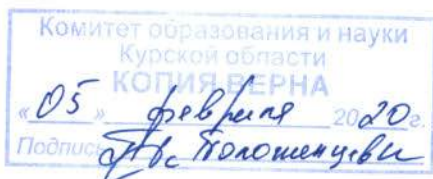 Комитет образования и науки
Курской области
КОПИЯ ВЕРНА
«05» февраля 2020г.
Подпись